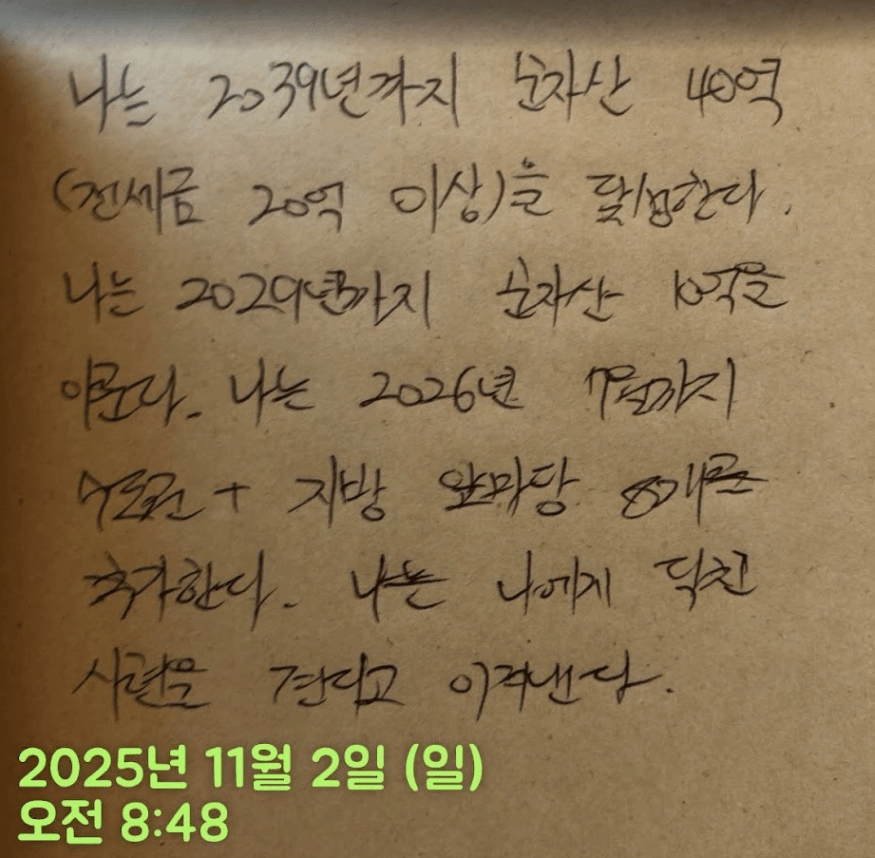 나는 2039년까지 순자산 40억
(전세금 20억 이상)을 달성한다.
나는 2029년까지 순자산 10억을
이룬다. 나는 2026년 7월까지
수도권 + 지방 앞마당 8개를
추가한다. 나는 나에게 닥친
시련을 견디고 이겨낸다.
2025년 11월 2일 (일)
오전 8:48